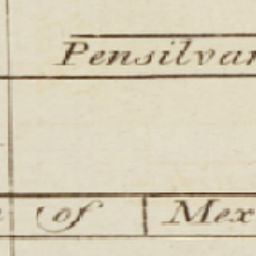 Pensilvan
of Mex